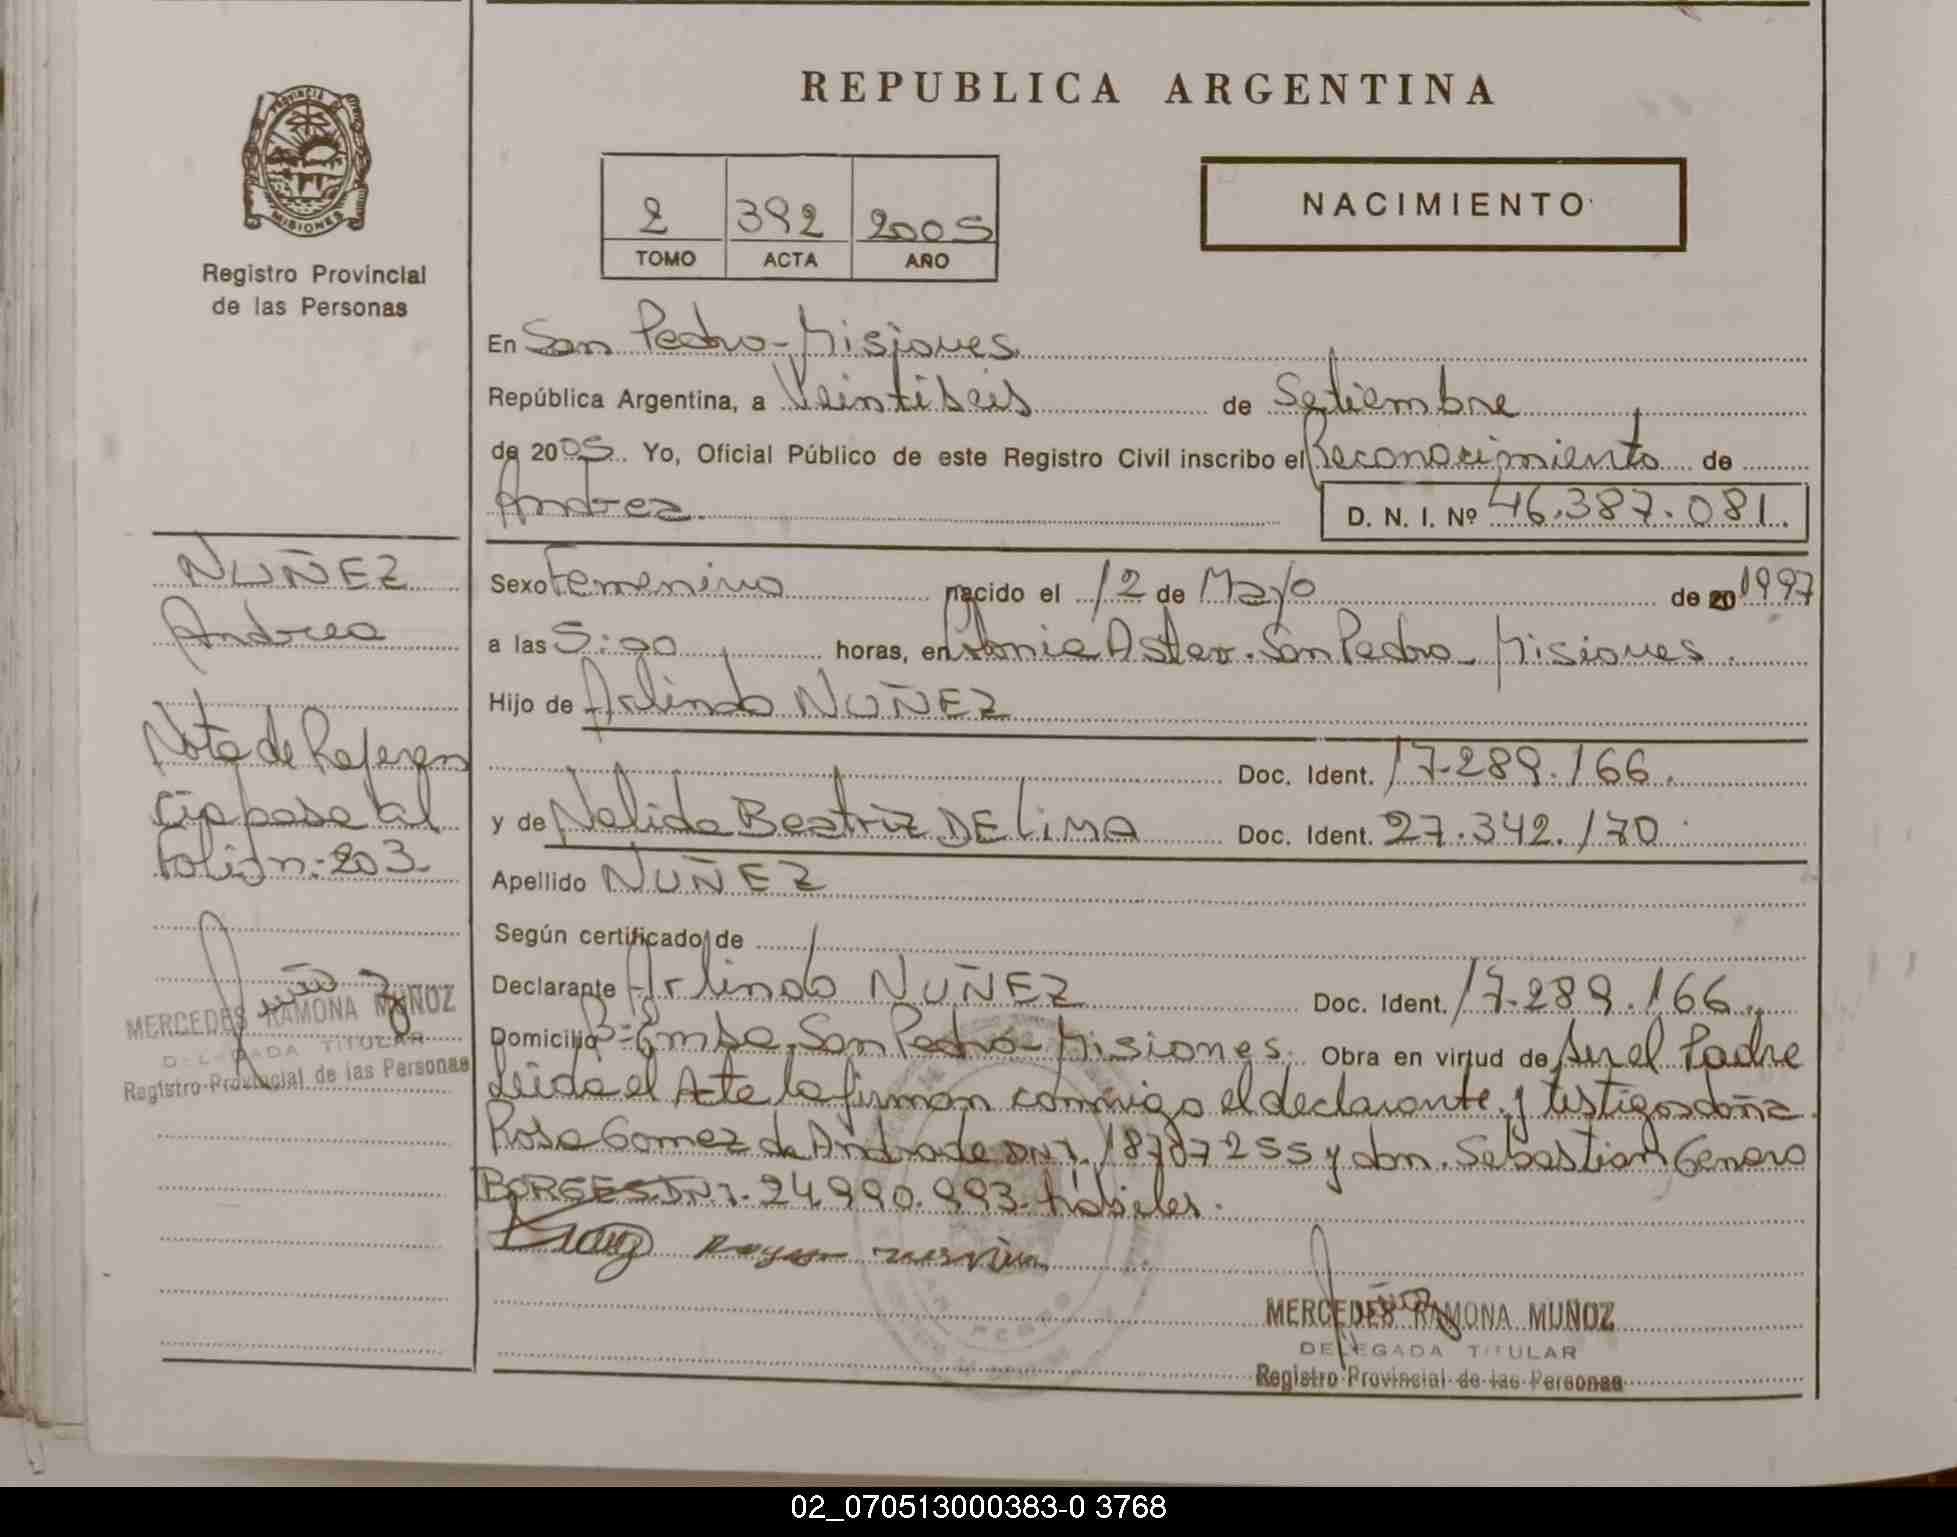 REPUBLICA ARGENTINA
PROVINCIA DE
MISIONES
Registro Provincial
de las Personas
2 392 2005
TOMO ACTA AÑO
NACIMIENTO
En San Pedro-Misiones
República Argentina, a Veintiseis de Setiembre
de 2005. Yo, Oficial Público de este Registro Civil inscribo el Reconocimiento de
Andrea. D. N. I. Nº 46.387.081.
Sexo Femenino nacido el 12 de Mayo de 20 1997
a las 5:00 horas, en Colonia Aster. San Pedro-Misiones.
Hijo de Arlindo NUÑEZ
Doc. Ident. 17.289.166.
y de Nelida Beatriz DE LIMA Doc. Ident. 27.342.170.
Apellido NUÑEZ
Según certificado de
Declarante Arlindo NUÑEZ Doc. Ident. 17.289.166.
Domicilio San Pedro-Misiones. Obra en virtud de Ser el Padre
Leida el Acta la firman conmigo el declarante y testigos doña
Rosa Gomez de Andrade DNI. 18787255 y don. Sebastian Genaro
BORGES DNI. 24.990.993. hábiles.
MERCEDES RAMONA MUÑOZ
DELEGADA TITULAR
Registro Provincial de las Personas
NUÑEZ
Andrea
Nota de Referen
cia pase al
Folio n: 203
MERCEDES RAMONA MUÑOZ
DELEGADA TITULAR
Registro Provincial de las Personas
02_070513000383-0 3768